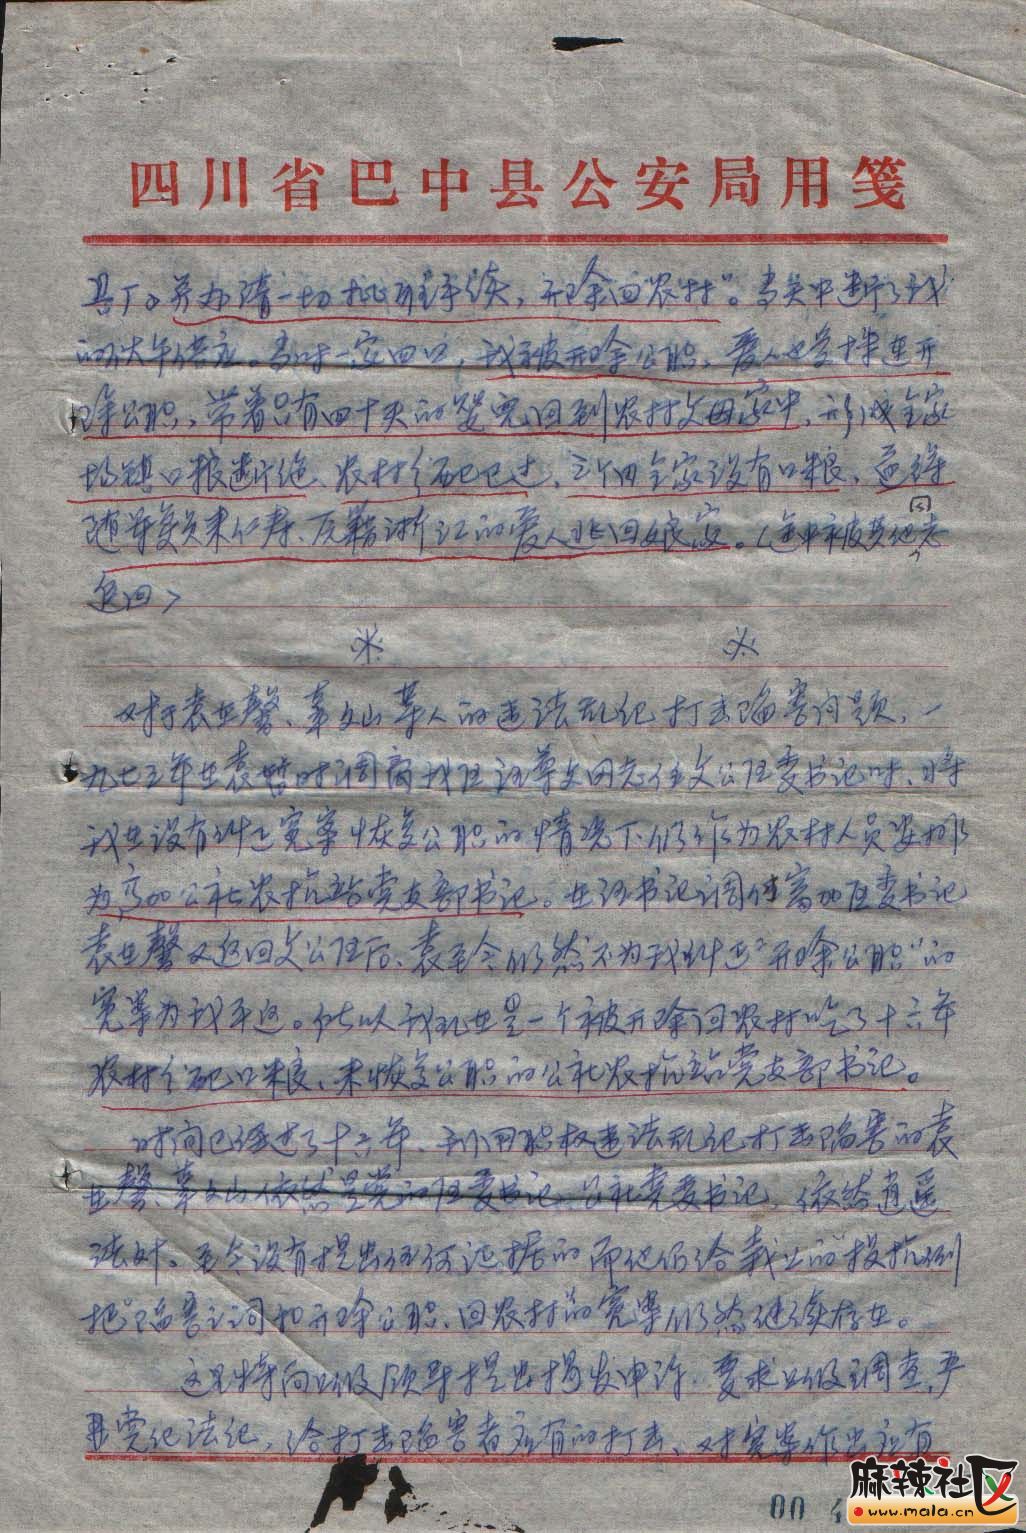 四川省巴中县公安局用笺
县厂。并办清一切批准手续，开除回农村”。当关中断了我
的伙年供应。当时一家四口，我被开除公职，爱人也受株连开
除公职，带着只有四十天的婴儿回到农村父母家中，形成全家
场镇口粮断绝、农村分配已过，三个四全家没有口粮，逼得
随军复员来仁寿、原籍浙江的爱人逃回娘家。（途中被其他同志
追回）
※ ※
对于袁世馨、苟文山等人的违法乱纪打击陷害问题，一
九七五年在袁暂时调离我区 同志任文公区委书记时、将
我在没有纠正冤案恢复公职的情况下仍作为农村人员安排
为 公社农机站党支部书记。在 书记调任富加区委书记
袁世馨又返回文公区后、袁至今仍然不为我纠正“开除公职”的
冤案为我平反。所以我现在是一个被开除回农村吃了十六年
农村分配口粮、未恢复公职的公社农机站党支部书记。
时间已经过了十六年、利用职权违法乱纪打击陷害的袁
世馨、苟文山依然是党的区委书记、公社党委书记，依然逍遥
法外、至今没有提出任何证据的而他们给栽上的“投机倒
把”陷害之词和开除公职、回农村的冤案仍然继续存在。
这里特向上级领导提出揭发申诉、要求上级调查，严
肃党纪法纪，给打击陷害者应有的打击、对冤案作出应有
00
麻辣社区
www.mala.cn